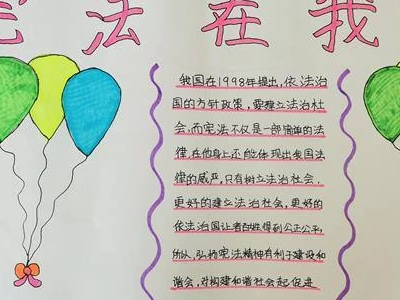 宪法在我
我国在1998年提出,依法治
国的方针政策,要建立法治社
会,而宪法不仅是一部简单的法
律,在他身上还能体现出我国法
律的威严,只有树立法治社会,
更好的建立法治社会,更好的
依法治国让老百姓得到公正公平,
所以,弘扬宪法精神有利于建设和
谐会,对构建和谐社会起促进